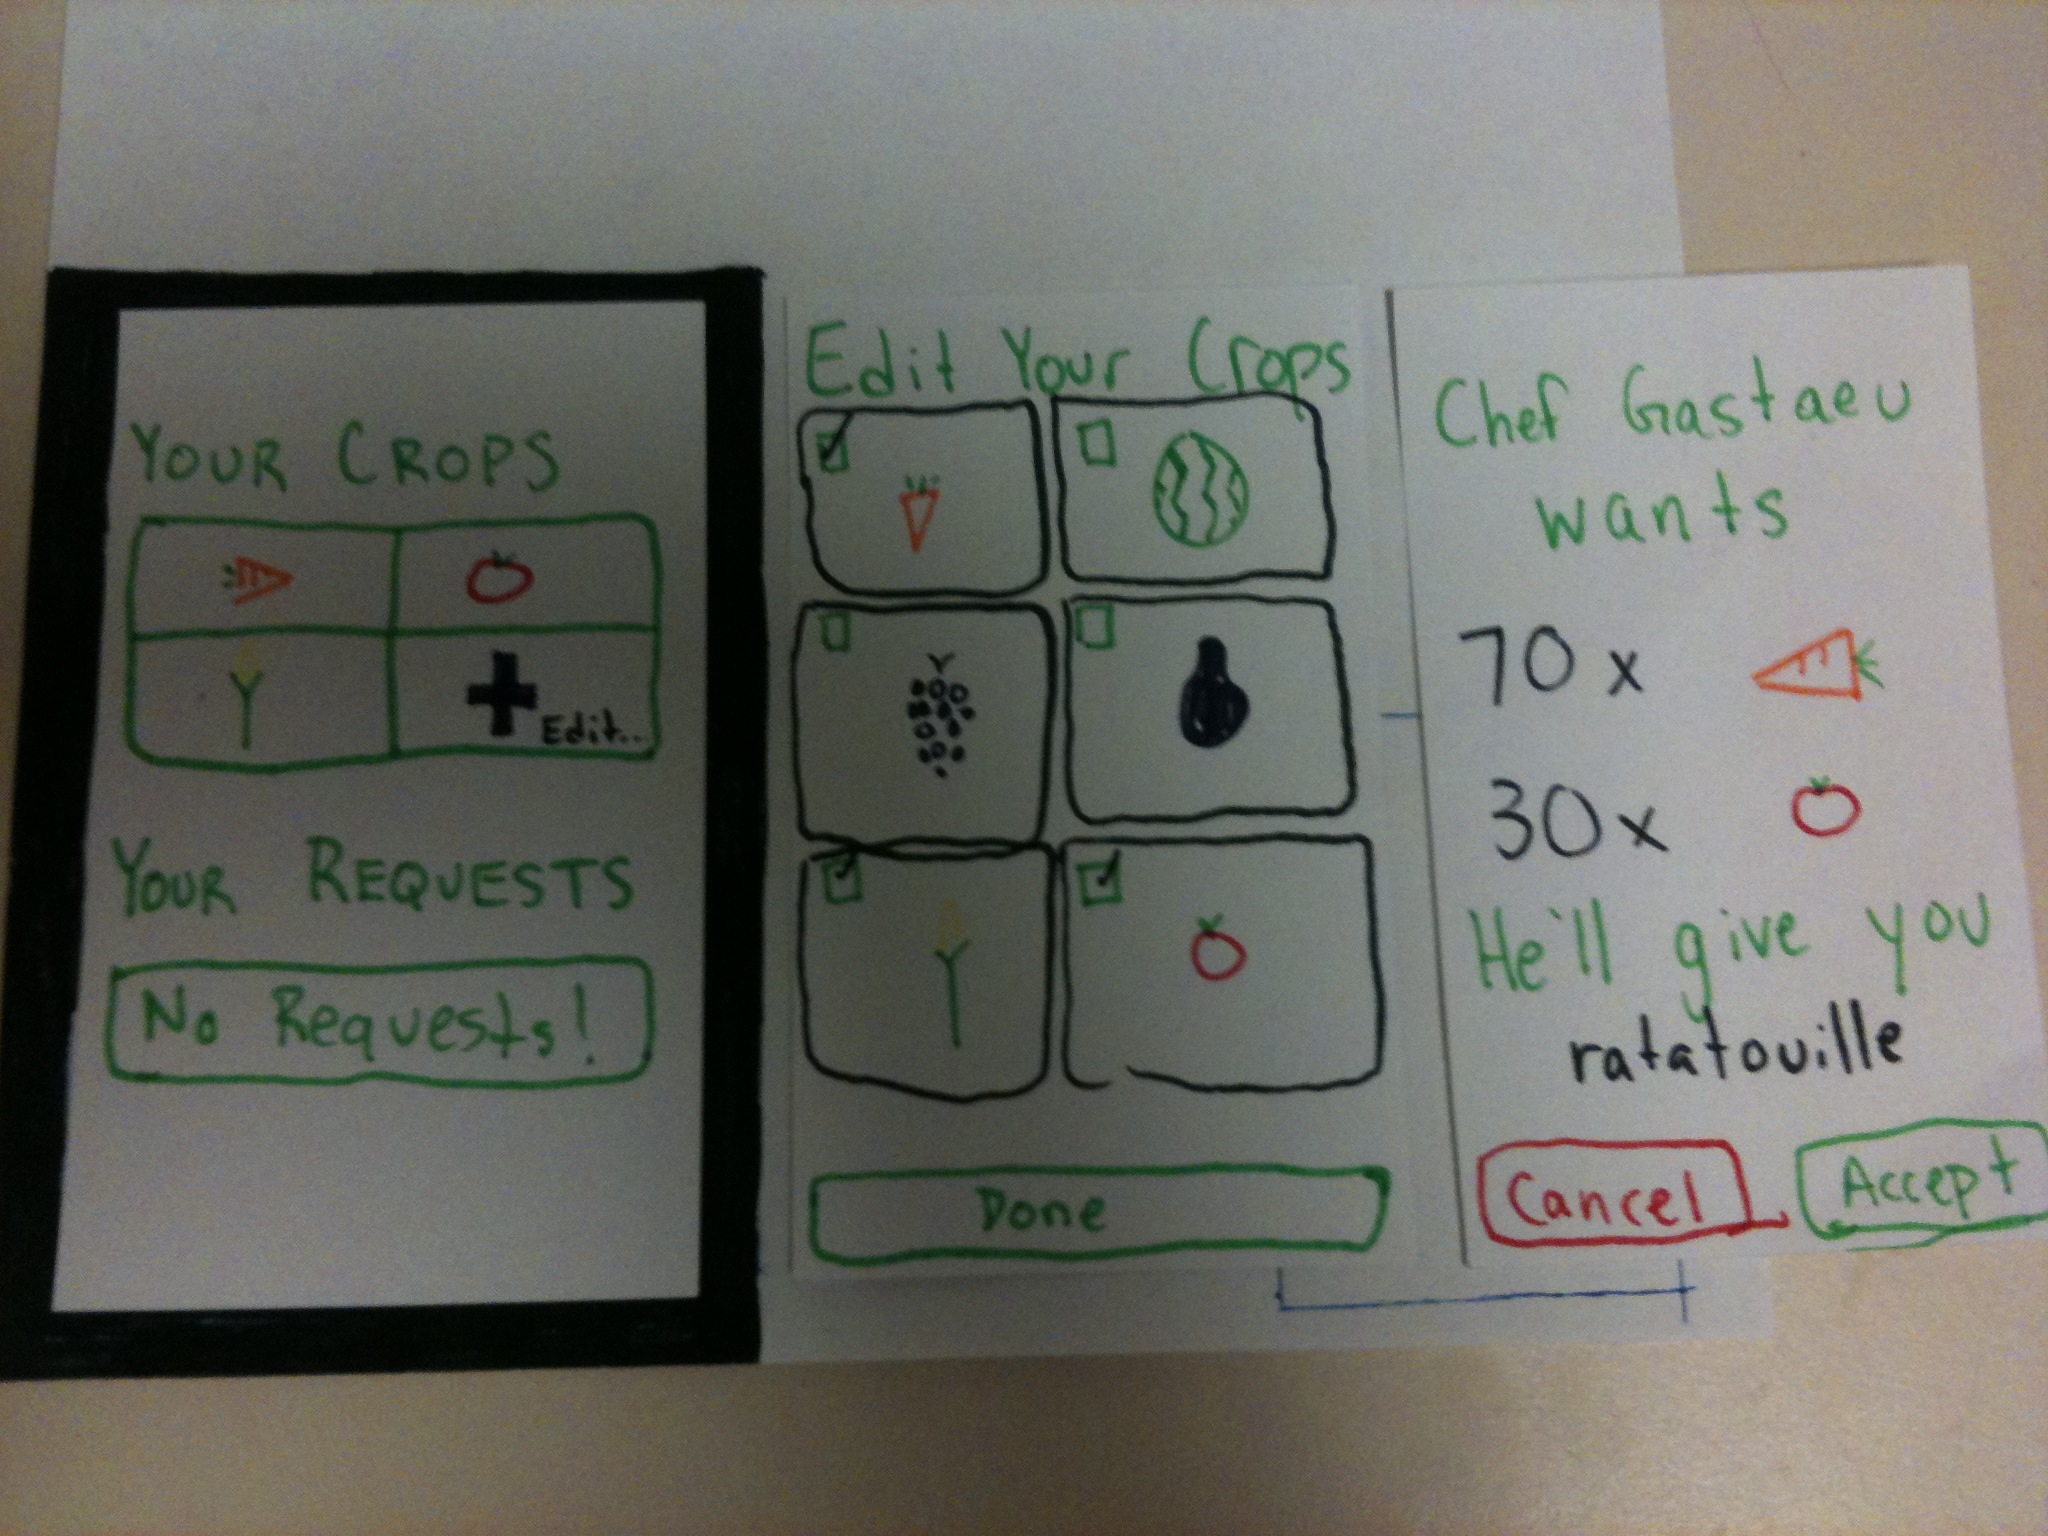 YOUR CROPS
Edit...
YOUR REQUESTS
No Requests!
Edit Your Crops
Done
Chef Gastaeu
wants
70 x
30 x
He'll give you
ratatouille
Cancel
Accept